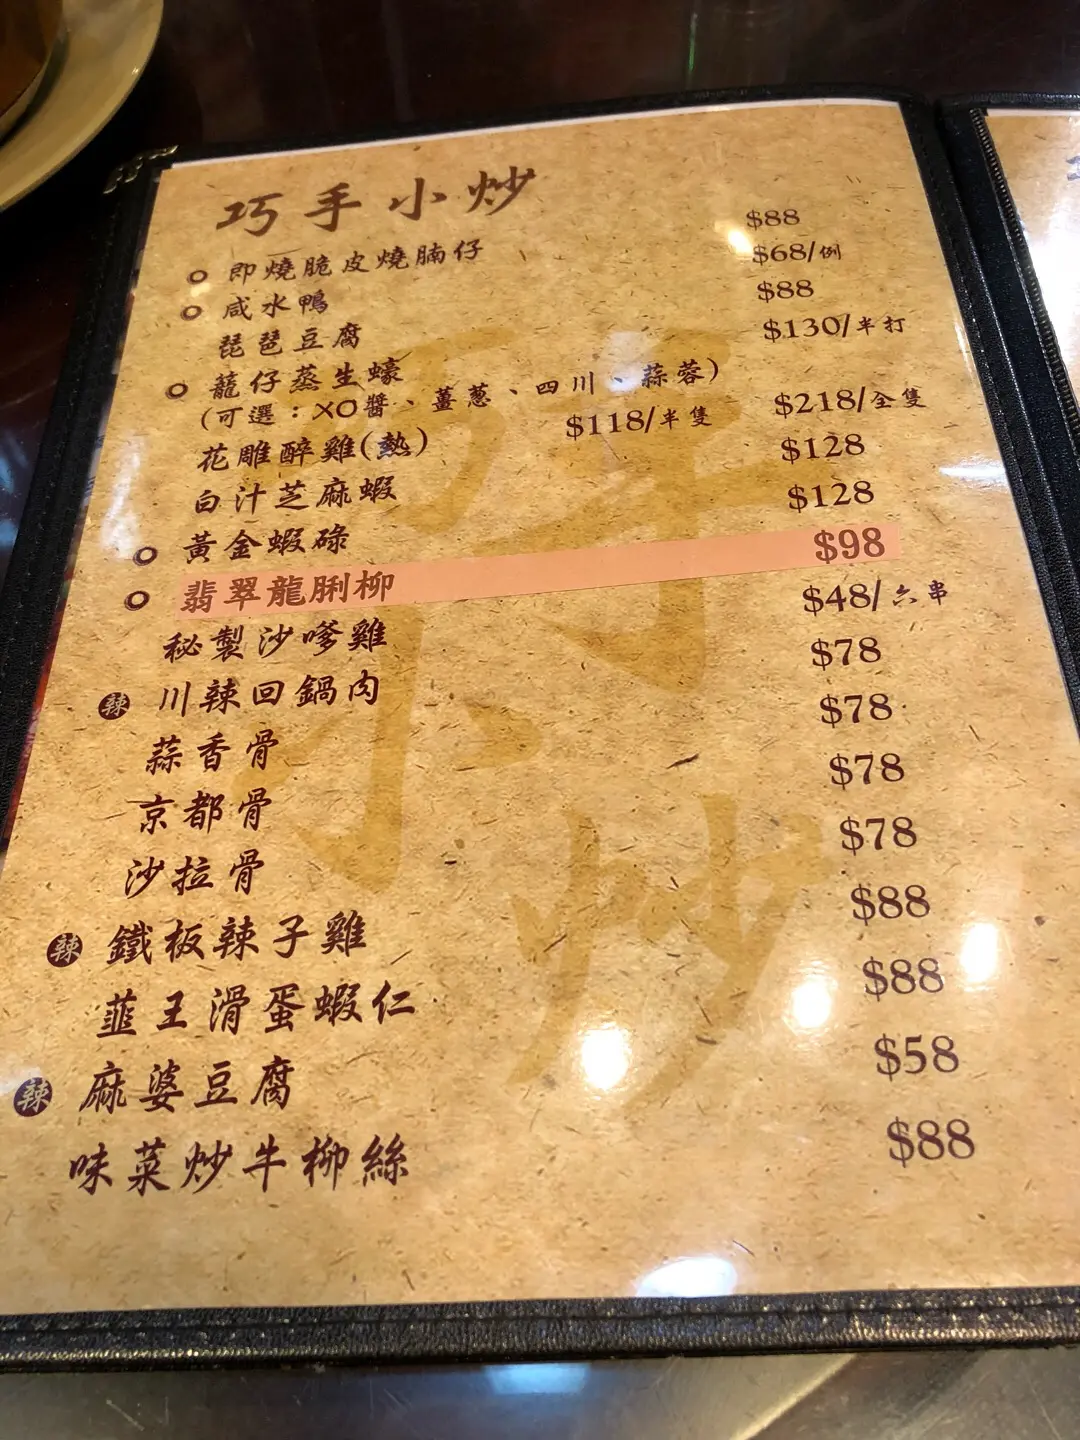 巧手小炒
即燒脆皮燒腩仔 $88
咸水鴨 $68/例
琵琶豆腐 $88
籠仔蒸生蠔 $130/半打
(可選：XO醬、薑葱、四川、蒜蓉)
花雕醉雞(熱) $118/半隻 $218/全隻
白汁芝麻蝦 $128
黃金蝦碌 $128
翡翠龍脷柳 $98
秘製沙嗲雞 $48/六串
辣 川辣回鍋肉 $78
蒜香骨 $78
京都骨 $78
沙拉骨 $78
辣 鐵板辣子雞 $88
韮王滑蛋蝦仁 $88
辣 麻婆豆腐 $58
味菜炒牛柳絲 $88